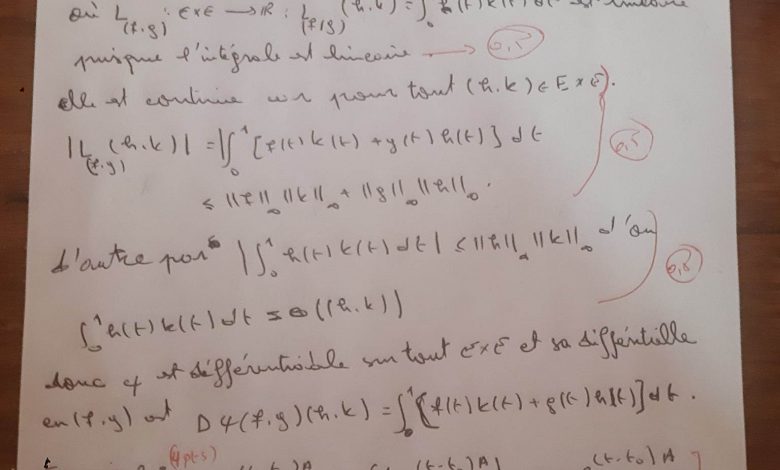 où L_(f,g) : E×E → ℝ : L_(f,g) (h,k) = ∫₀ h(t)k(t) est linéaire
puisque l'intégrale est linéaire → 0,5
elle est continue car pour tout (h,k) ∈ E×E.
|L_(f,g) (h,k)| = |∫₀¹ [f(t)k(t) + g(t)h(t)] dt 0,5
≤ ||f||_∞ ||k||_∞ + ||g||_∞ ||h||_∞.
d'autre part |∫₀¹ h(t)k(t)dt| ≤ ||h||_∞ ||k||_∞ d'où 0,5
∫₀¹ h(t)k(t)dt = o((h,k))
donc φ est différentiable sur tout E×E et sa différentielle
en (f,g) est Dφ(f,g)(h,k) = ∫₀¹ [f(t)k(t) + g(t)h(t)]dt.
(4pts) (t-t₀)A (t-t₀)A